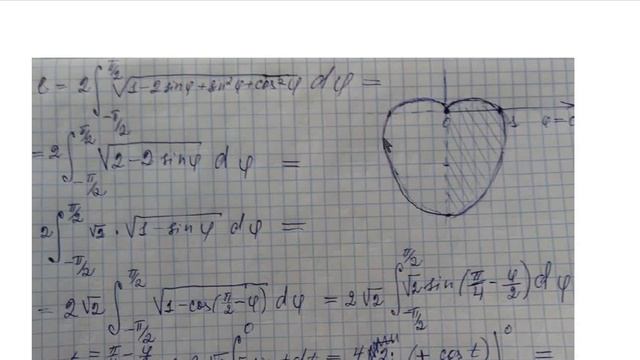 ℓ = 2∫_{-π/2}^{π/2} √(1-2sinφ+sin²φ+cos²φ) dφ =
0 1 φ=0
= 2∫_{-π/2}^{π/2} √(2-2sinφ) dφ =
2∫_{-π/2}^{π/2} √2 · √(1-sinφ) dφ =
= 2√2 ∫_{-π/2}^{π/2} √(1-cos(π/2-φ)) dφ = 2√2 ∫_{-π/2}^{π/2} √2 sin(π/4-φ/2) dφ
t = π/4 - φ/2 dt = (+cost)|^0 =